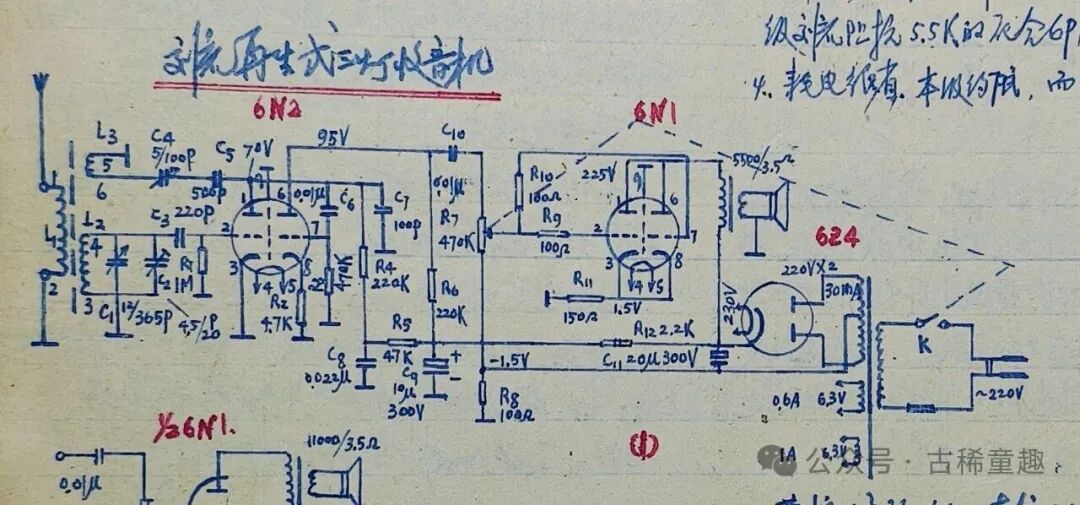 级刘流阻抗5.5K的
4、耗电维直.本级约 ，而
刘流再生式三灯收音机
6N2
6N1
6Z4
L3
5
6
C4
5/100P
C5
500P
70V
95V
C10
0.01μ
0.01μ
C6
C7
100P
R7
470K
R10
100Ω
R9
100Ω
225V
5500/3.5Ω
L1
1
2
L2
4
3
C3
220P
R1
1M
C1
12/365P
C2
4.5/20P
1
9
6
2
7
3
4
5
8
R2
4.7K
470K
R4
220K
R6
220K
R5
47K
C8
0.022μ
C9
10μ
300V
+
-
-1.5V
R8
100Ω
R11
150Ω
1.5V
1
9
6
2
7
3
4
5
8
R12 2.2K
C11 20μ300V
230V
220V×2
30MA
0.6A
6.3V
1A
6.3V
K
~220V
(1)
½6N1.
0.01μ
11000/3.5Ω
公众号·古稀童趣